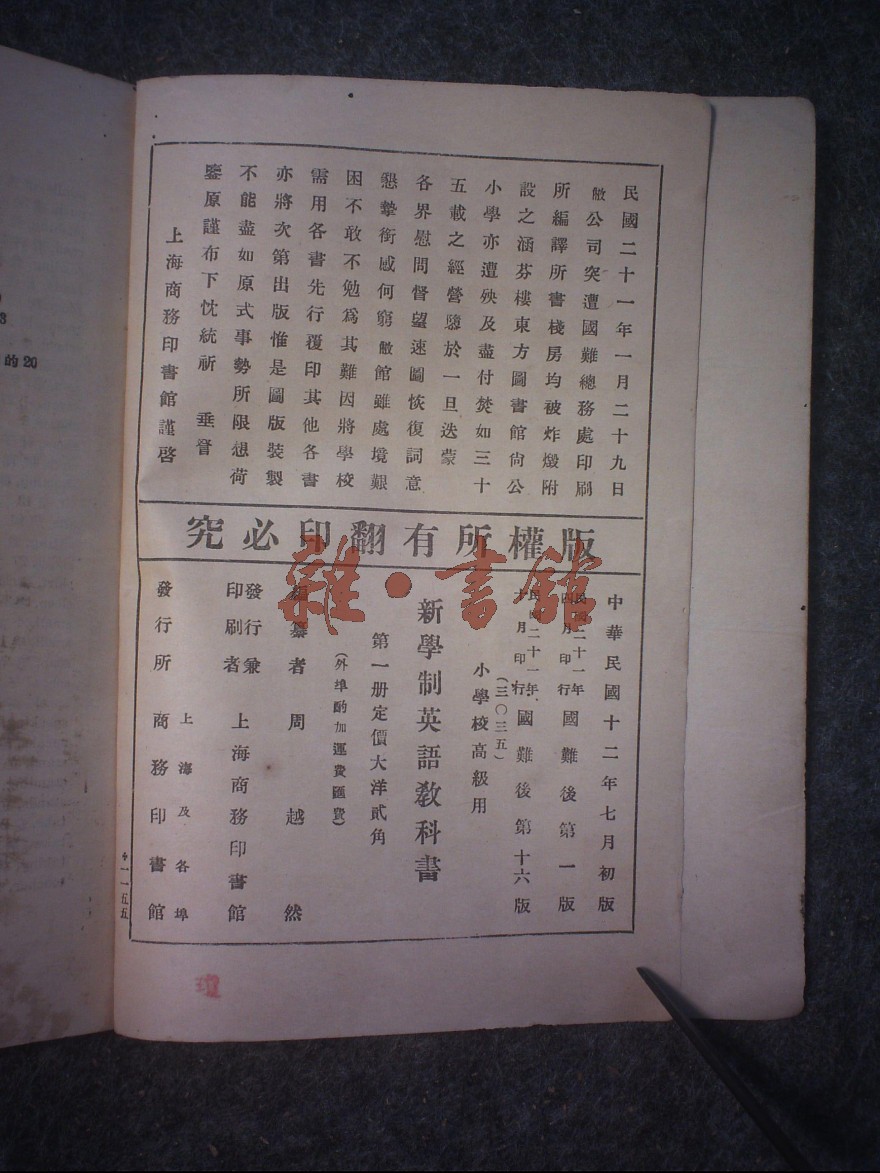 民國二十一年一月二十九日
敝公司突遭國難總務處印刷
所編譯所書棧房均被炸燬附
設之涵芬樓東方圖書館尙公
小學亦遭殃及盡付焚如三十
五載之經營隳於一旦迭蒙
各界慰問督望速圖恢復詞意
懇摯銜感何窮敝館雖處境艱
困不敢不勉爲其難因將學校
需用各書先行覆印其他各書
亦將次第出版惟是圖版裝製
不能盡如原式事勢所限想荷
鑒原謹布下忱統祈 垂詧
上海商務印書館謹啓
究必印翻有所權版
中華民國十二年七月初版
民國二十一年四月印行國難後第一版
民國二十一年十月印行國難後第十六版
(三〇三五)
小學校高級用
新學制英語敎科書
第一册定價大洋貳角
(外埠酌加運費匯費)
編纂者 周越然
發行兼印刷者 上海商務印書館
發行所 上海及各埠 商務印書館
雜·書館
的 20